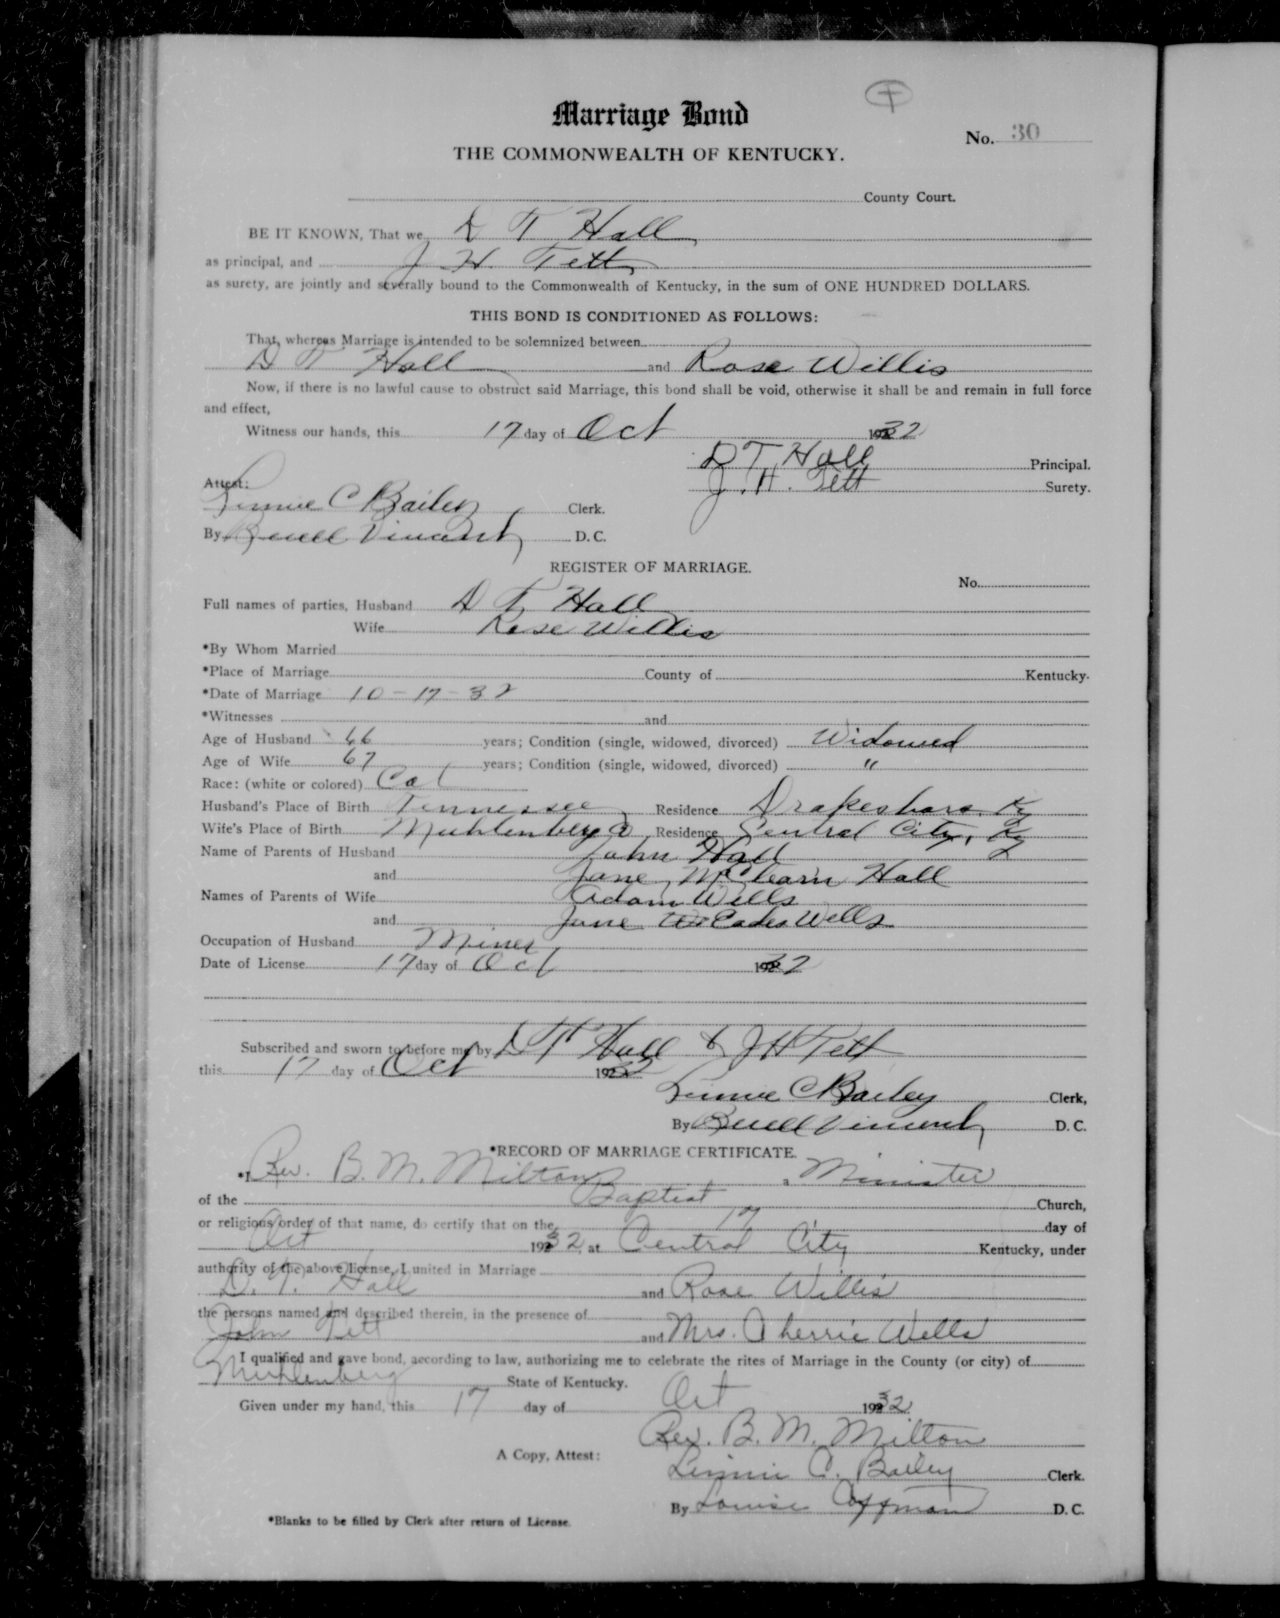 Marriage Bond
THE COMMONWEALTH OF KENTUCKY.
No. 30
County Court.
BE IT KNOWN, That we D T Hall
as principal, and J H. Tett
as surety, are jointly and severally bound to the Commonwealth of Kentucky, in the sum of ONE HUNDRED DOLLARS.
THIS BOND IS CONDITIONED AS FOLLOWS:
That, whereas Marriage is intended to be solemnized between
D T Hall and Rose Willis
Now, if there is no lawful cause to obstruct said Marriage, this bond shall be void, otherwise it shall be and remain in full force
and effect,
Witness our hands, this 17 day of Oct 1932
D T Hall Principal.
J. H. Tett Surety.
Attest:
Linnie C Bailey Clerk.
By Vincent D. C.
REGISTER OF MARRIAGE.
No.
Full names of parties, Husband D T Hall
Wife Rose Willis
*By Whom Married
*Place of Marriage County of Kentucky.
*Date of Marriage 10-17-32
*Witnesses and
Age of Husband 66 years; Condition (single, widowed, divorced) Widowed
Age of Wife 67 years; Condition (single, widowed, divorced) "
Race: (white or colored) Col
Husband's Place of Birth Tennessee Residence Drakesboro, Ky
Wife's Place of Birth Muhlenberg Co Residence Central City, Ky
Name of Parents of Husband John Hall
and Jane Hall
Names of Parents of Wife Adam Wells
and Jane Wells
Occupation of Husband Miner
Date of License 17 day of Oct 1932
Subscribed and sworn to before me by D T Hall & J H Tett
this 17 day of Oct 1932
Linnie C Bailey Clerk,
By Vincent D. C.
*RECORD OF MARRIAGE CERTIFICATE.
*I Rev. B. M. Milton, a Minister
of the Baptist Church,
or religious order of that name, do certify that on the 17 day of
Oct 1932 at Central City Kentucky, under
authority of the above license, I united in Marriage
D. T. Hall and Rose Willis
the persons named and described therein, in the presence of
John Tett and Mrs. Cherrie Wells
I qualified and gave bond, according to law, authorizing me to celebrate the rites of Marriage in the County (or city) of
Muhlenberg State of Kentucky.
Given under my hand, this 17 day of Oct 1932
Rev. B. M. Milton
A Copy, Attest:
Linnie C. Bailey Clerk.
By Louise Coffman D. C.
*Blanks to be filled by Clerk after return of License.